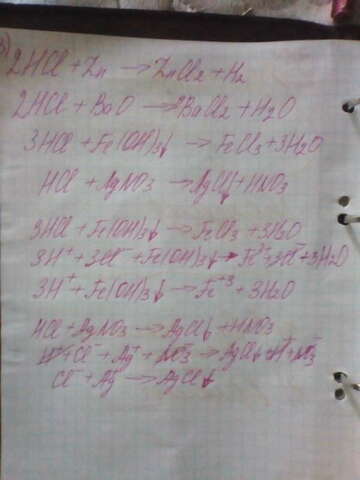 в)
2HCl + Zn → ZnCl2 + H2
2HCl + BaO → BaCl2 + H2O
3HCl + Fe(OH)3↓ → FeCl3 + 3H2O
HCl + AgNO3 → AgCl↓ + HNO3
3HCl + Fe(OH)3↓ → FeCl3 + 3H2O
3H⁺ + 3Cl⁻ + Fe(OH)3↓ → Fe⁺³ + 3Cl⁻ + 3H2O
3H⁺ + Fe(OH)3↓ → Fe⁺³ + 3H2O
HCl + AgNO3 → AgCl↓ + HNO3
H⁺ + Cl⁻ + Ag⁺ + NO3⁻ → AgCl↓ + H⁺ + NO3⁻
Cl⁻ + Ag⁺ → AgCl↓